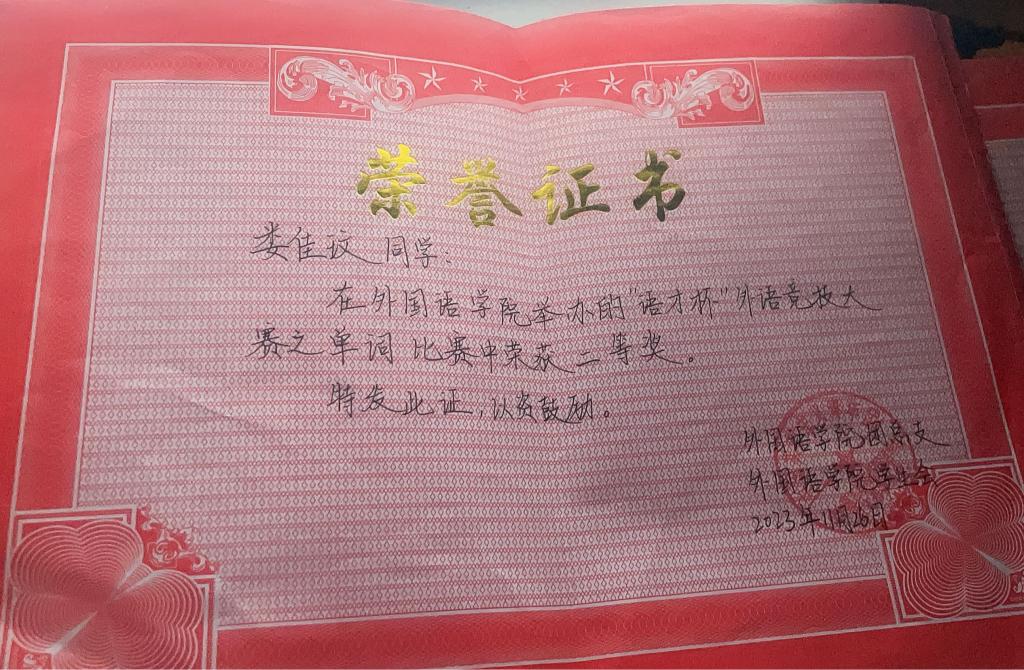 荣誉证书
娄佳玟 同学:
在外国语学院举办的"语才杯"外语竞技大
赛之单词比赛中荣获二等奖。
特发此证,以资鼓励。
外国语学院团总支
外国语学院学生会
2023年11月26日